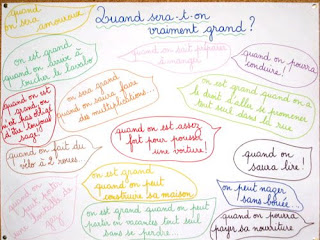 quand on sera amoureux
Quand sera-t-on
vraiment grand ?
on est grand
quand on arrive à
toucher le lavabo
quand on sait préparer
à manger
quand on pourra
conduire !
quand on est
grand, on
n'est pas obligé
d'être toujours
sage !
on sera grand
quand on saura faire
des multiplications...
on est grand quand on a
le droit d'aller se promener
tout seul dans la rue
quand on est assez
fort pour pousser
une voiture !
quand on fait du
vélo à 2 roues...
quand on
saura lire !
on est grand
quand on peut
construire sa maison
on peut nager
sans bouée...
on est grand quand on peut
partir en vacances tout seul
sans se perdre...
quand on pourra
payer sa nourriture